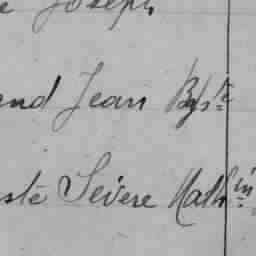 e Joseph
and Jean Bpte
ste Sévère Mathin